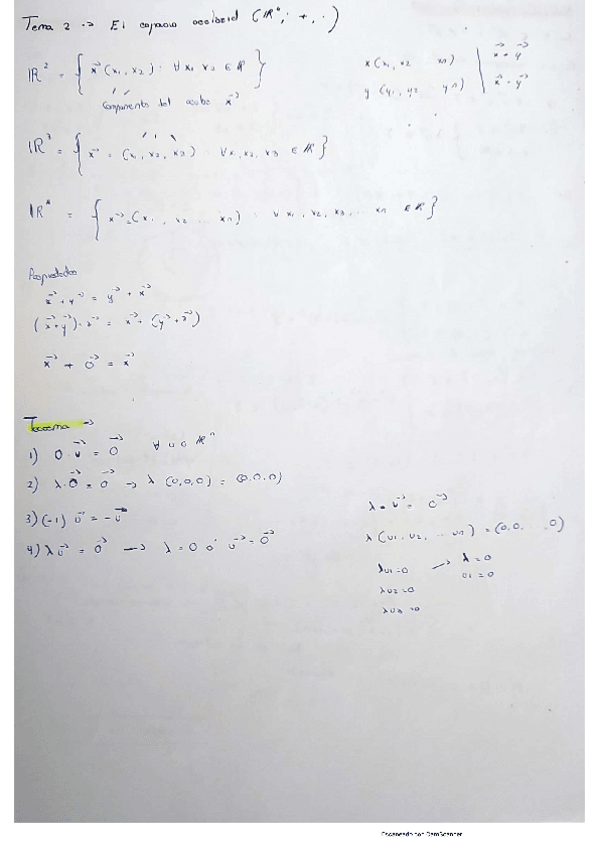 Tema 2 -> El espacio vectorial (ℝⁿ, +, ·)
ℝ² = { x⃗ (x₁, x₂) : ∀ x₁ x₂ ∈ ℝ }
x (x₁, x₂ xn) | x⃗ + y⃗
y (y₁, y₂ yn) | x⃗ · y⃗
x⃗
ℝ³ = { x⃗ = (x₁, x₂, x₃) ∀ x₁, x₂, x₃ ∈ ℝ }
= { x⃗ = (x₁, x₂ ... xn) : ∀ x₁, x₂, x₃, ... xn ∈ ℝ }
Propiedades
x⃗ + y⃗ = y⃗ + x⃗
(x⃗ + y⃗) + z⃗ = x⃗ + (y⃗ + z⃗)
x⃗ + 0⃗ = x⃗
Teorema ->
1) 0 · u⃗ = 0⃗ ∀ u ℝⁿ
2) λ · 0⃗ = 0⃗ -> λ (0,0,0) = (0,0,0)
3) (-1) u⃗ = -u⃗
4) λ u⃗ = 0⃗ -> λ = 0 o u⃗ = 0⃗
λ · u⃗ = 0⃗
λ (u₁, u₂, ... un) = (0,0. ..0)
λu₁ = 0 -> λ = 0
u₁ = 0
λu₂ = 0
λun = 0
Escaneado con CamScanner